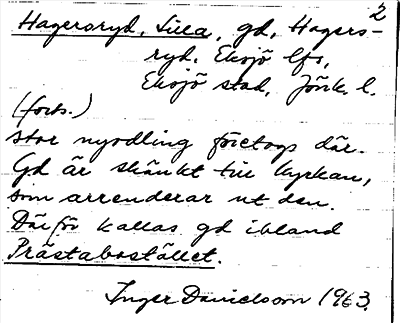 2
Hagersryd, Lilla, gd, Hagers-
ryd, Eksjö lfs,
Eksjö stad, Jönk. l.
(forts.)
stor nyodling företogs där.
Gd är skänkt till kyrkan,
som arrenderar ut den.
Därför kallas gd ibland
Prästabostället.
Inger Danielsson 1963.